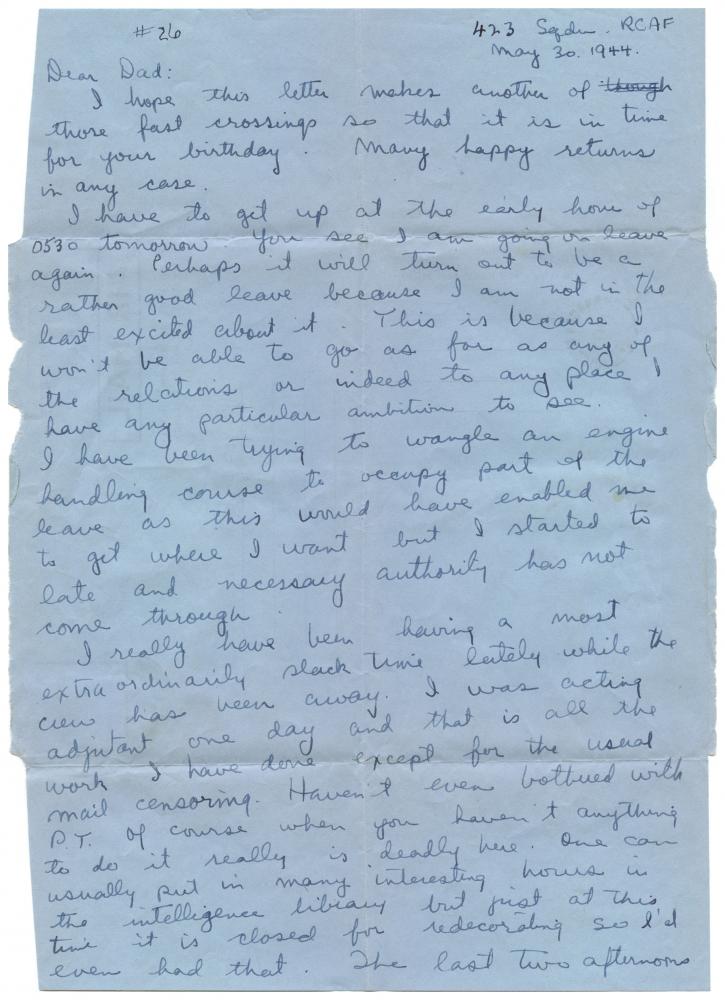 #26
423 Sqdn. RCAF
May 30. 1944.
Dear Dad:
I hope this letter makes another of though
those fast crossings so that it is in time
for your birthday. Many happy returns
in any case.
I have to get up at the early hour of
0530 tomorrow. You see I am going on leave
again. Perhaps it will turn out to be a
rather good leave because I am not in the
least excited about it. This is because I
won't be able to go as far as any of
the relations or indeed to any place I
have any particular ambition to see.
I have been trying to wangle an engine
handling course to occupy part of the
leave as this would have enabled me
to get where I want but I started to
late and necessary authority has not
come through.
I really have been having a most
extraordinarily slack time lately while the
crew has been away. I was acting
adjutant one day and that is all the
work I have done except for the usual
mail censoring. Haven't even bothered with
P.T. Of course when you haven't anything
to do it really is deadly here. One can
usually put in many interesting hours in
the intelligence library but just at this
time it is closed for redecorating so I'd
even had that. The last two afternoons